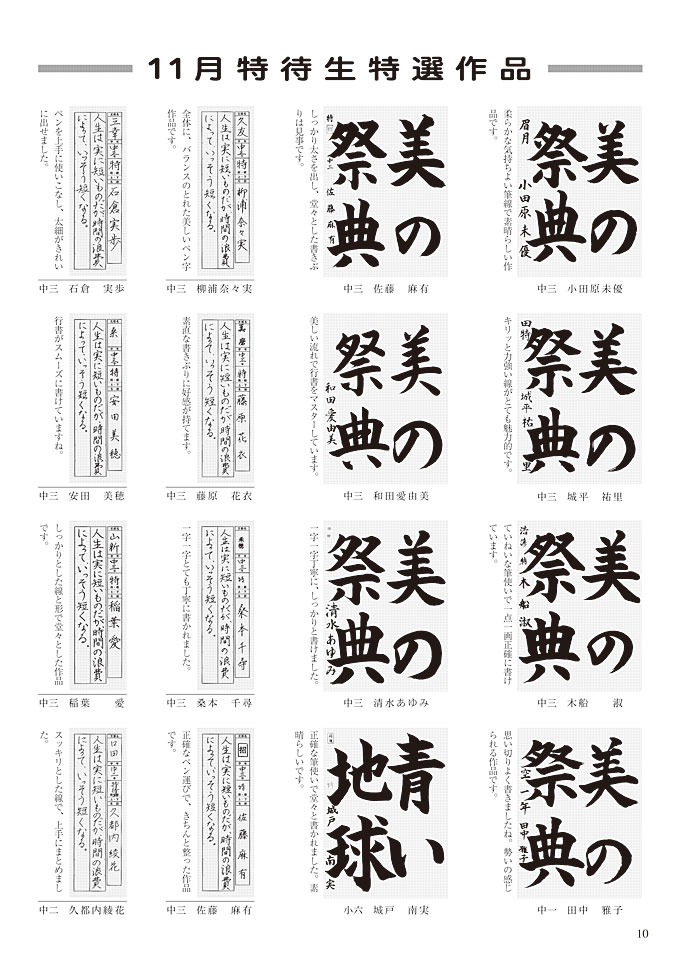 11月特待生特選作品
美の
祭典
眉月
小田原未優
柔らかな気持ちよい筆線で素晴らしい作
品です。
中三 小田原未優
美の
祭典
特
佐藤麻有
しっかり太さを出し、堂々とした書きぶ
りは見事です。
中三 佐藤 麻有
久友 中三 特 柳浦奈々実
人生は実に短いものだが時間の浪費
によっていっそう短くなる。
全体に、バランスのとれた美しいペン字
作品です。
中三 柳浦奈々実
三幸 中三 特 石倉実歩
人生は実に短いものだが時間の浪費
によっていっそう短くなる。
ペンを上手に使いこなし、太細がきれい
に出せました。
中三 石倉 実歩
美の
祭典
田特
城平祐里
キリッと力強い線がとても魅力的です。
中三 城平 祐里
美の
祭典
和田愛由美
美しい流れで行書をマスターしています。
中三 和田愛由美
中三 特 藤原花衣
人生は実に短いものだが時間の浪費
によっていっそう短くなる。
素直な書きぶりに好感が持てます。
中三 藤原 花衣
中三 特 安田美穂
人生は実に短いものだが時間の浪費
によっていっそう短くなる。
行書がスムーズに書けていますね。
中三 安田 美穂
美の
祭典
特 木船淑
ていねいな筆使いで一点一画正確に書け
ています。
中三 木船 淑
美の
祭典
清水あゆみ
一字一字丁寧に、しっかりと書けました。
中三 清水あゆみ
中三 特 桑本千尋
人生は実に短いものだが時間の浪費
によっていっそう短くなる。
一字一字とても丁寧に書かれました。
中三 桑本 千尋
山新 中三 特 稲葉愛
人生は実に短いものだが時間の浪費
によっていっそう短くなる。
しっかりとした線と形で堂々とした作品
です。
中三 稲葉 愛
美の
祭典
空一年 田中雅子
思い切りよく書きましたね。勢いの感じ
られる作品です。
中一 田中 雅子
青い
地球
城戸南実
正確な筆使いで堂々と書かれました。素
晴らしいです。
小六 城戸 南実
招 中三 特 佐藤麻有
人生は実に短いものだが時間の浪費
によっていっそう短くなる。
正確なペン運びで、きちんと整った作品
です。
中三 佐藤 麻有
口田 中二 特 久都内綾花
人生は実に短いものだが時間の浪費
によっていっそう短くなる。
スッキリとした線で、上手にまとめまし
た。
中二 久都内綾花
10